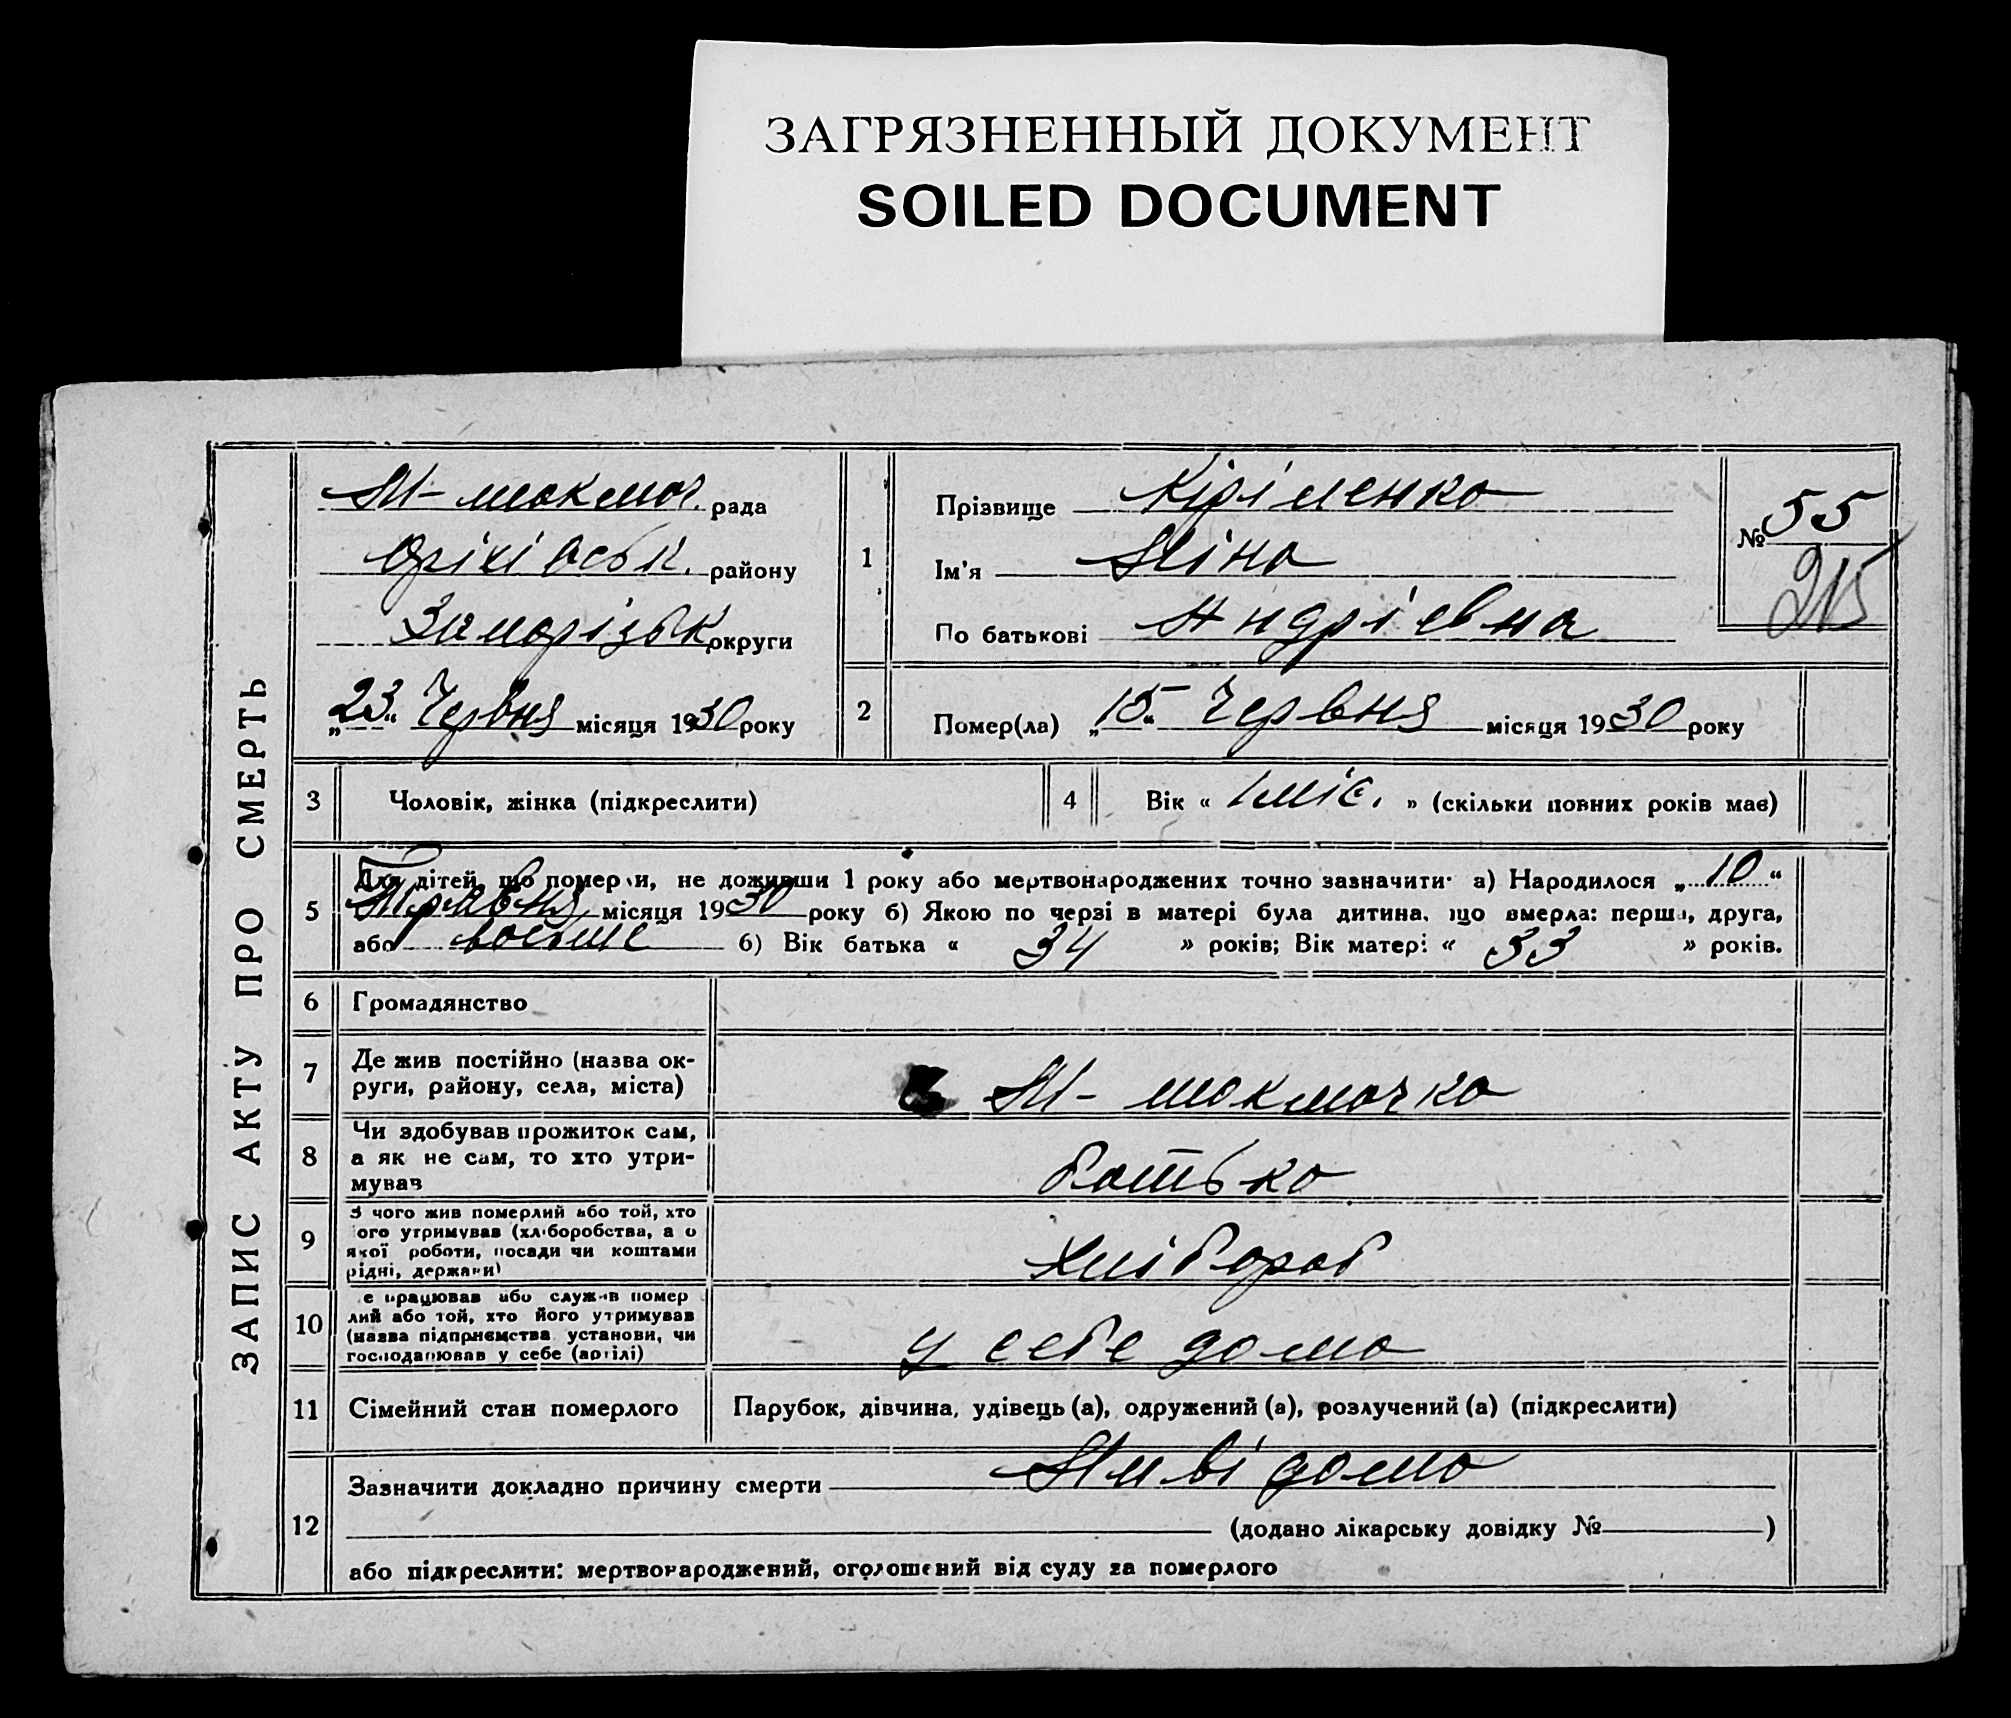 ЗАГРЯЗНЕННЫЙ ДОКУМЕНТ
SOILED DOCUMENT
ЗАПИС АКТУ ПРО СМЕРТЬ
М-токмач. рада
Оріхівськ. району
Запорізьк округи
„23“ Червня місяця 1930 року
1
Прізвище Кіріленко
Ім'я Ніна
По батькові Андріевна
№ 55
215
2
Помер(ла) „15“ Червня місяця 1930 року
3 Чоловік, жінка (підкреслити)
4 Вік « 1 міс. » (скільки повних років має)
5 Для дітей, що померли, не доживши 1 року або мертвонароджених точно зазначити: а) Народилося „10“
Травня місяця 1930 року б) Якою по черзі в матері була дитина, що вмерла: перша, друга,
або восьме б) Вік батька « 34 » років; Вік матері « 33 » років.
6 Громадянство
7 Де жив постійно (назва ок-
руги, району, села, міста)
М-токмачка
8 Чи здобував прожиток сам,
а як не сам, то хто утри-
мував
батько
9 З чого жив померлий або той, хто
його утримував (хліборобства, а о
якої роботи, посади чи коштами
рідні, держави)
Хлібороб
10 Де працював або служив помер
лий або той, хто його утримував
(назва підприємства установи, чи
господарював у себе (артілі)
у себе дома
11 Сімейний стан померлого
Парубок, дівчина, удівець (а), одружений (а), розлучений (а) (підкреслити)
12 Зазначити докладно причину смерти Нивідомо
(додано лікарську довідку № )
або підкреслити: мертвонароджений, оголошений від суду за померлого